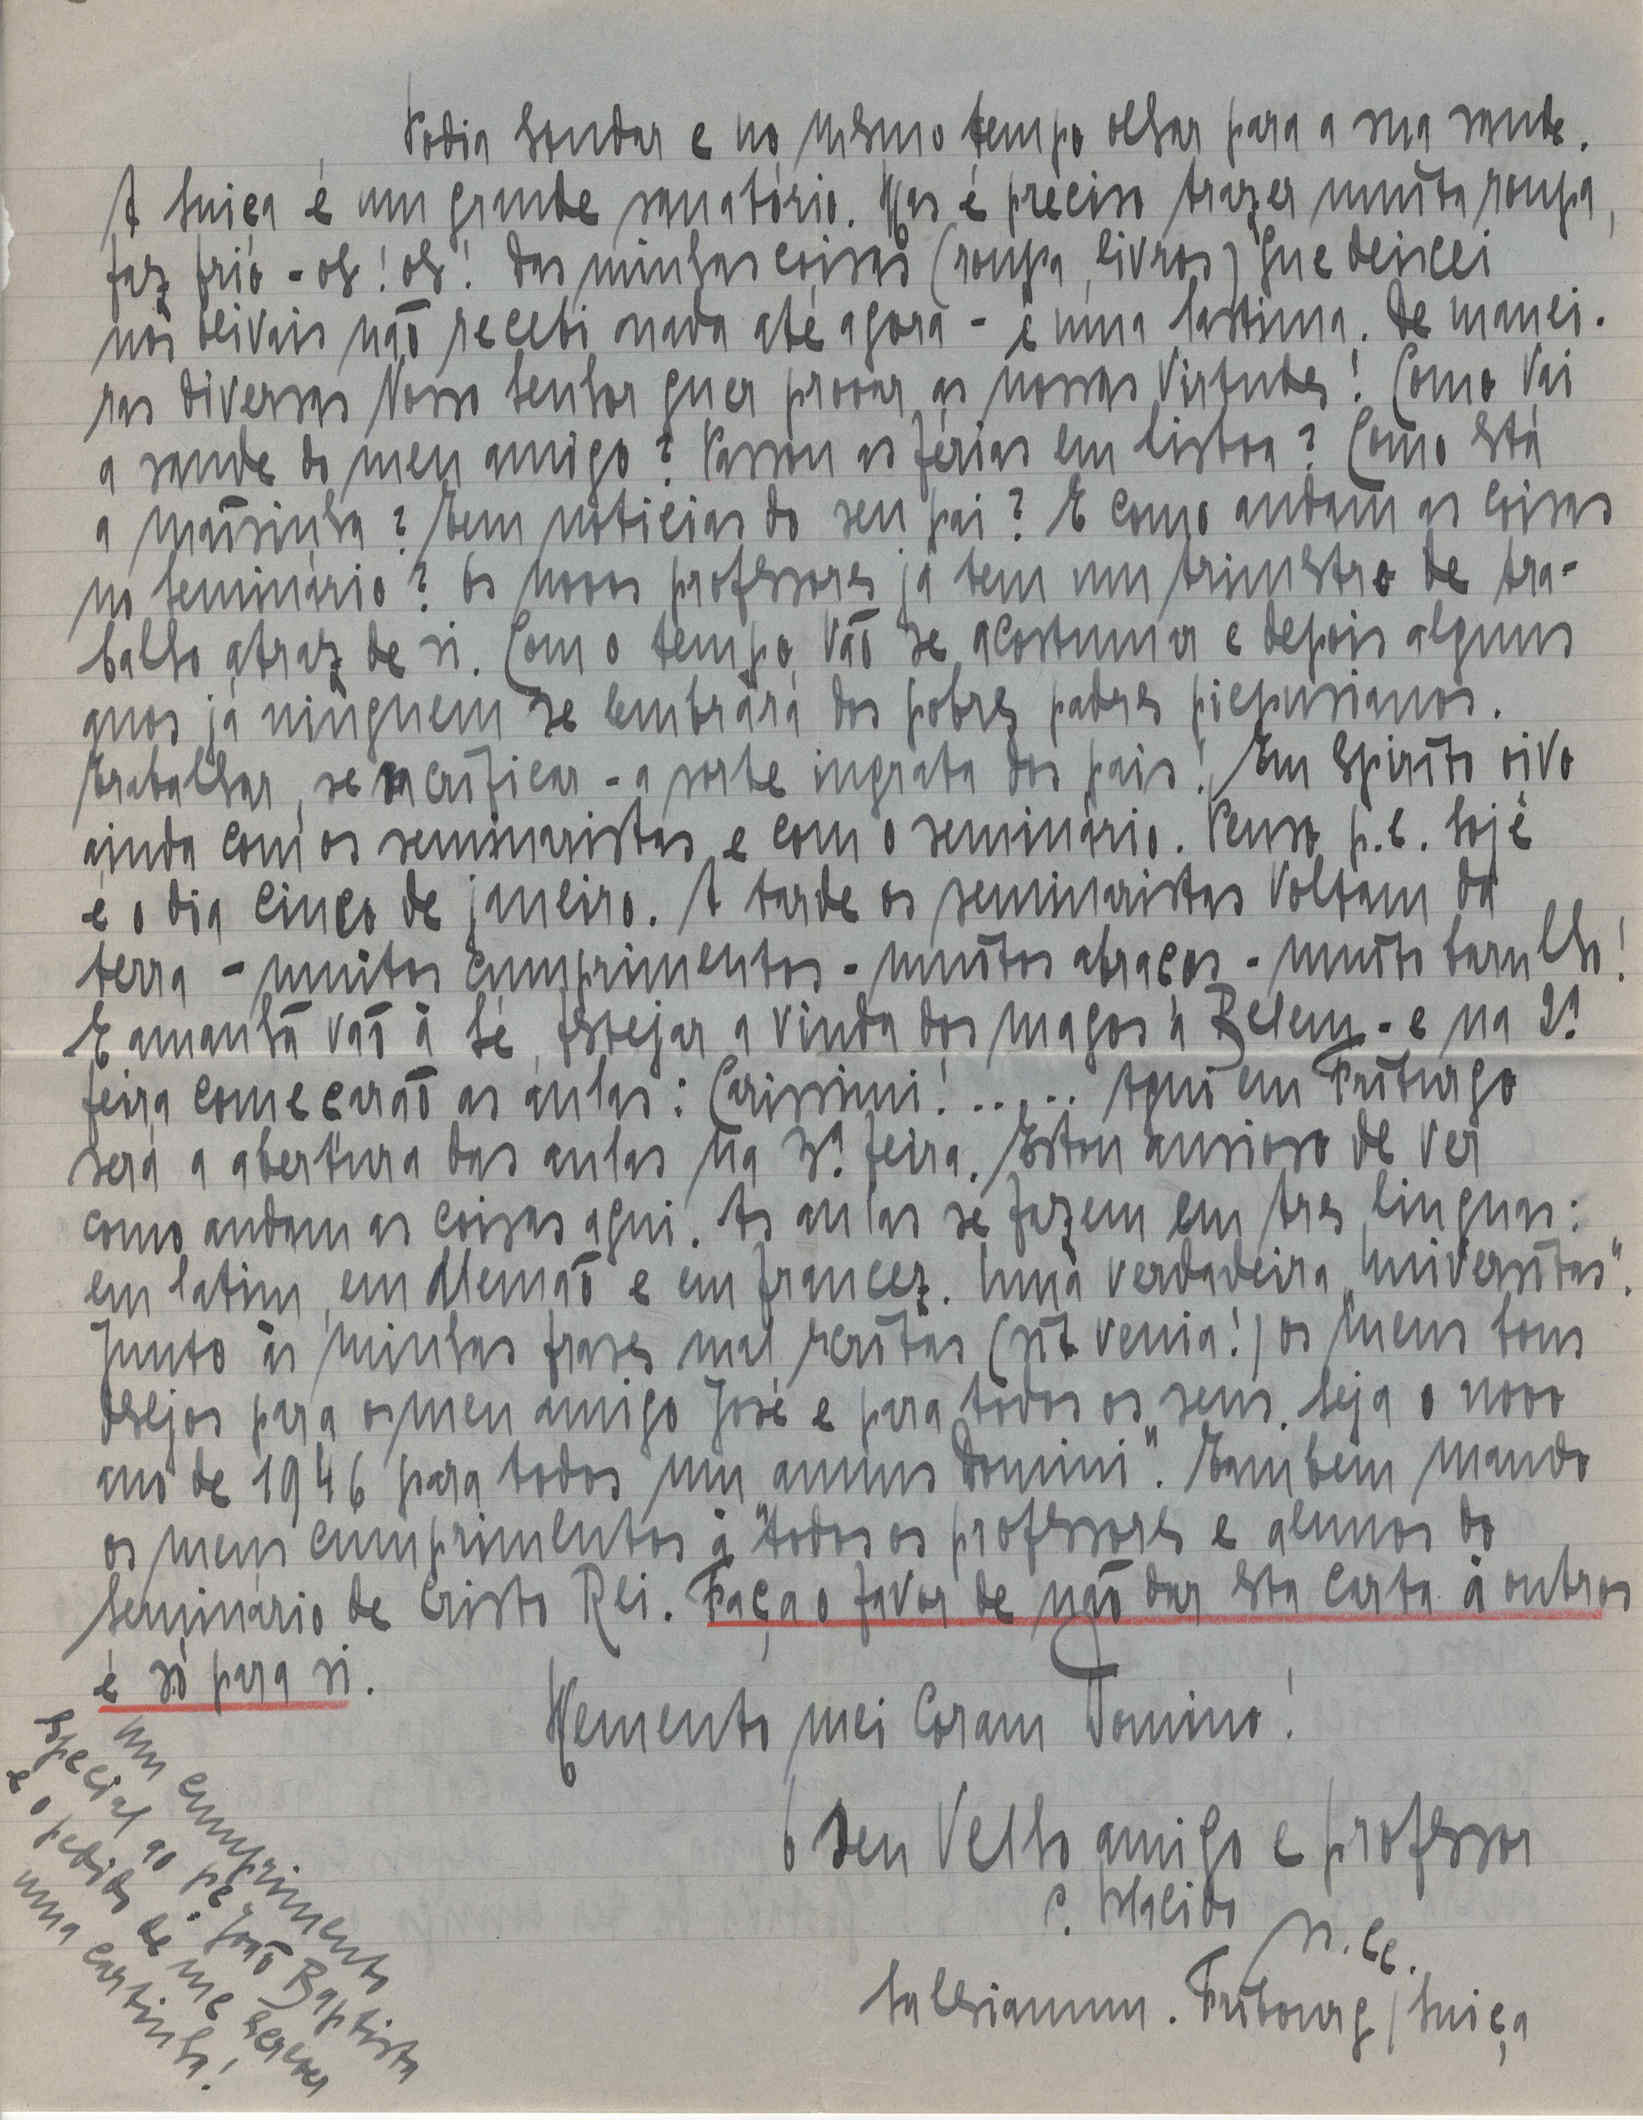 Podia estudar e no mesmo tempo olhar para a sua saude.
A Suiça é um grande sanatório. Mas é preciso trazer muita roupa,
faz frio - oh! oh! Das minhas coisas (roupa, livros) que deixei
nos Olivais não recebi nada até agora - é uma lastima. De manei-
ras diversas Nosso Senhor quer provar as nossas virtudes! Como vai
a saude do meu amigo? Passou as férias em Lisboa? Como está
a mãesinha? Tem noticias do seu pai? E como andam as coisas
no Seminário? Os novos professores já tem um trimestro de tra-
balho atraz de si. Com o tempo vão se acostumar e depois alguns
anos já ninguem se lembrará dos pobres padres piepusianos.
Trabalhar, se sacrificar - a sorte ingrata dos pais! Em espirito vivo
ainda com os seminaristas e com o seminário. Penso p.e. hoje
é o dia cinco de janeiro. A tarde os seminaristas voltam da
terra - muitos cumprimentos - muitos abraços - muito barulho!
E amanhã vão à Sé, festejar a vinda dos magos à Belem - e na 2ª
feira começarão as aulas: Carissimi! ..... Aqui em Friburgo
será a abertura das aulas na 3ª feira. Estou ansioso de ver
como andam as coisas aqui. As aulas se fazem em tres linguas:
em latim, em Alemão e em francez. Uma verdadeira "Universitas".
Junto às minhas frases mal escritas (sit venia!) os meus bons
desejos para o meu amigo José e para todos os seus. Seja o novo
ano de 1946 para todos um "annus Domini". Tambem mando
os meus cumprimentos à todos os professores e alunos do
Seminário de Cristo Rei. Faça o favor de não dar esta carta à outros
é só para si.
Memento mei coram Domino!
O seu velho amigo e professor
P. Plácido ss.cc.
Salesianum. Fribourg / Suiça
Um cumprimento
especial ao Pe. João Baptista
e o pedido de me escrever
uma cartinha!